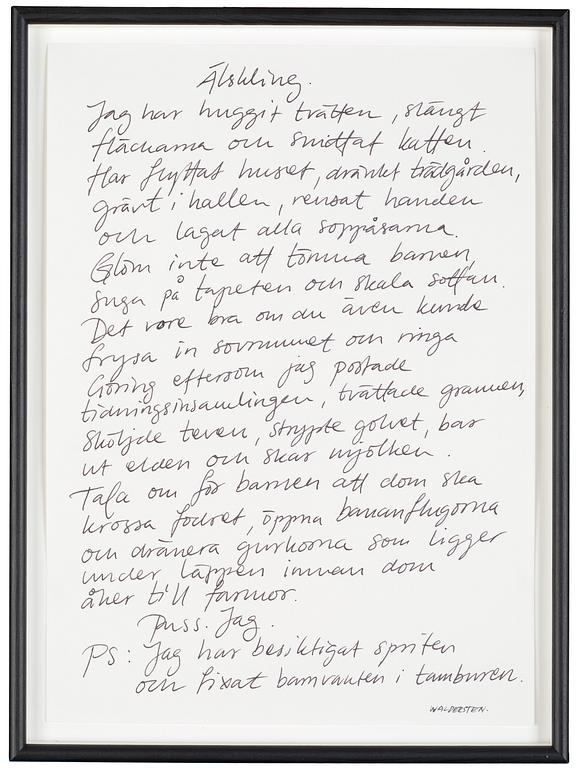 Älskling.
Jag har huggit tvätten, slängt
fläckarna och smittat katten.
Har flyttat huset, dränkt trädgården,
grävt i hallen, rensat handen
och lagat alla soppåsarna.
Glöm inte att tömma barnen,
suga på tapeten och skala soffan.
Det vore bra om du även kunde
frysa in sovrummet och ringa
Göring eftersom jag postade
tidningsinsamlingen, tvättade grannen,
sköljde teven, strypte golvet, bar
ut elden och skar mjölken.
Tala om för barnen att dom ska
krossa fodret, öppna bananflugorna
och dränera gurkorna som ligger
under läppen innan dom
åker till farmor.
Puss. Jag.
PS: Jag har besiktigat spriten
och fixat barnvanten i tamburen.
WALDERSTEN.